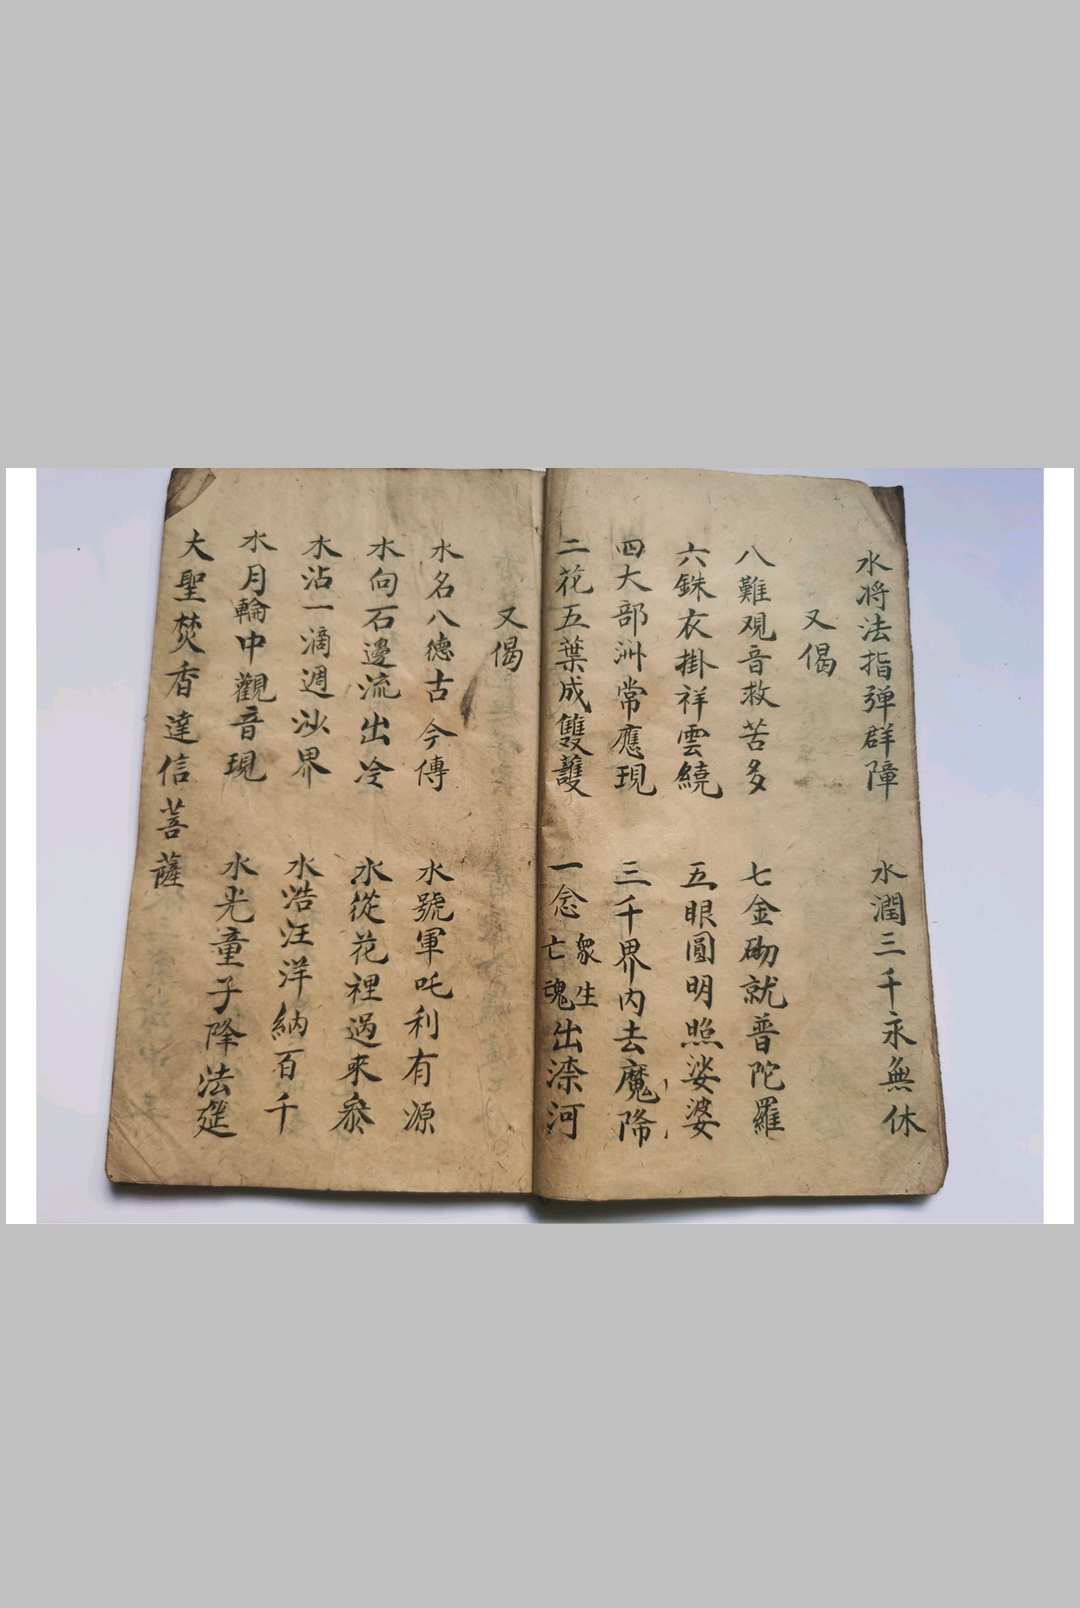 水将法指弹群障　水潤三千永無休
又偈
八難观音救苦多　七金砌就普陀羅
六銖衣掛祥雲繞　五眼圓明照娑婆
四大部洲常應現　三千界内去魔降
二花五葉成雙護　一念衆生亡魂出渿河
又偈
水名八德古今傳　水號軍吒利有源
水向石邊流出冷　水從花裡過来
水沾一滴週沙界　水浩汪洋納百千
水月輪中觀音現　水光童子降法筵
大聖焚香達信菩薩